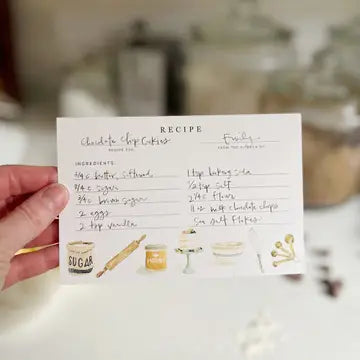 RECIPE
Chocolate Chip Cookies
Emily
RECIPE FOR:
FROM THE KITCHEN OF:
INGREDIENTS:
3/4 c. butter, softened
3/4 c. sugar
3/4 c. brown sugar
2 eggs
2 tsp vanilla
1 tsp baking soda
1/2 tsp salt
2 1/4 c. flour
milk chocolate chips
Sea salt flakes
SUGAR
HONEY